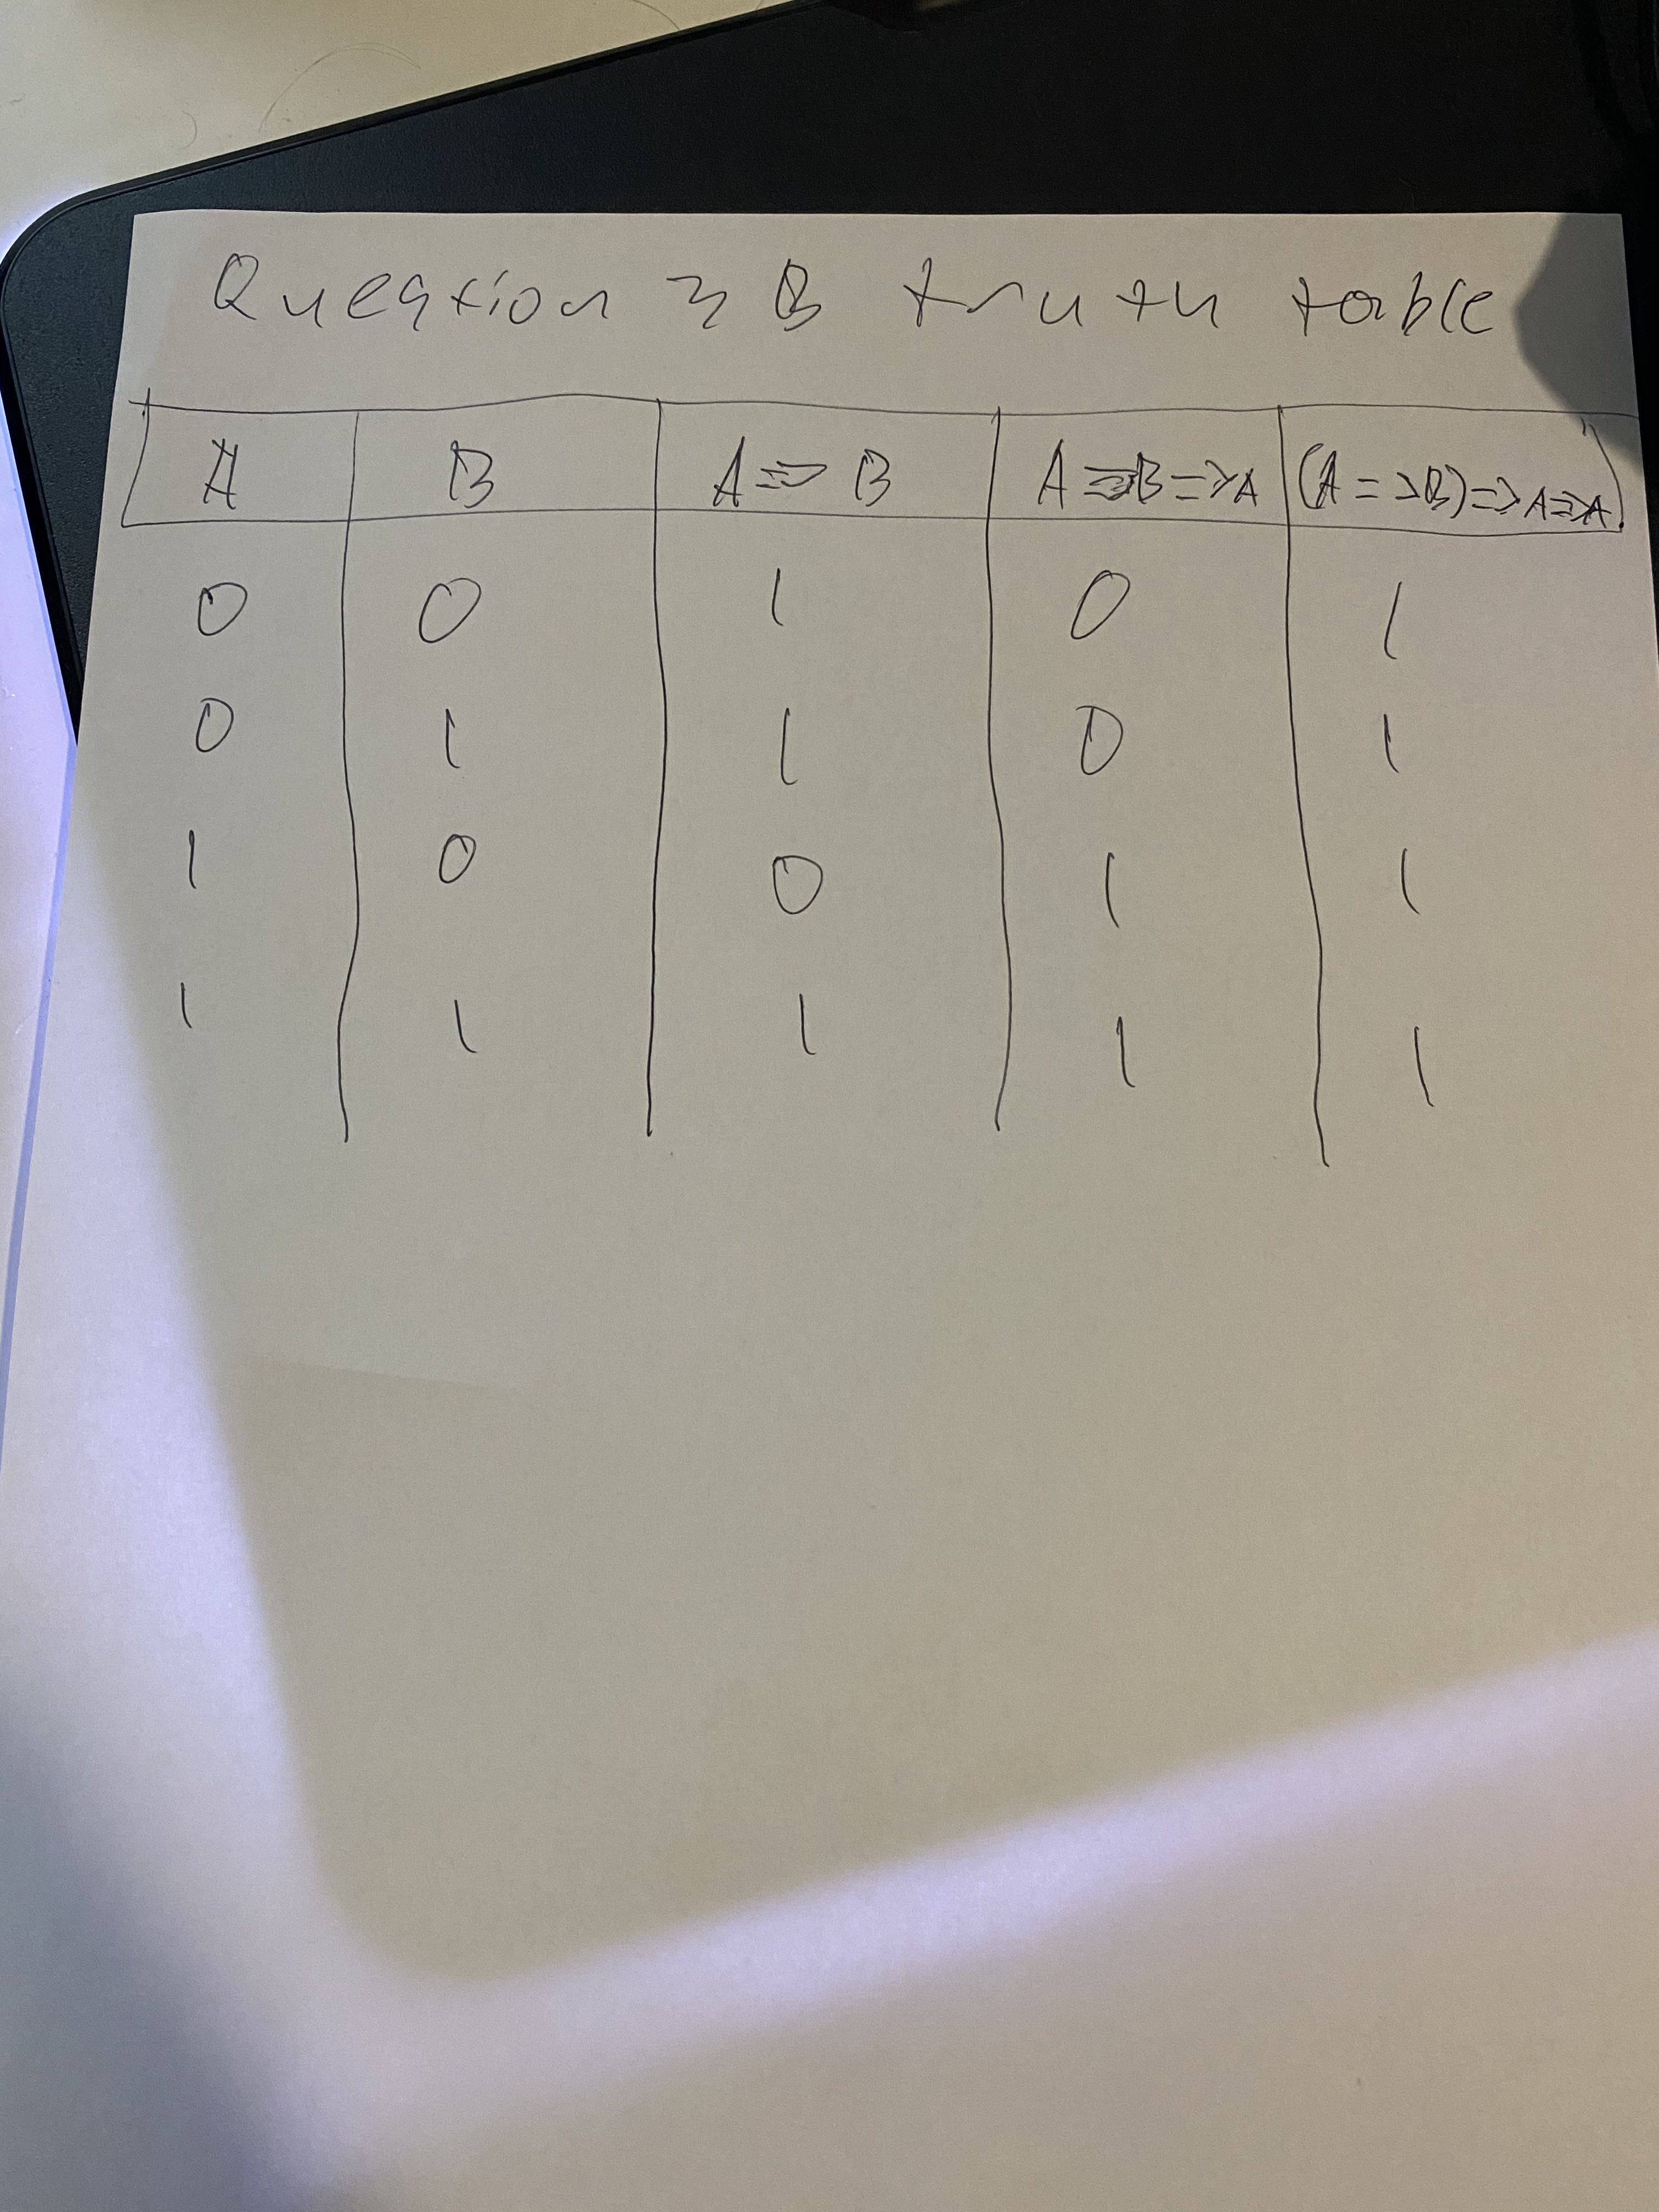 Question 3 B truth table
A B A => B A => B => A (A => B) => A => A
0 0 1 0 1
0 1 1 0 1
1 0 0 1 1
1 1 1 1 1